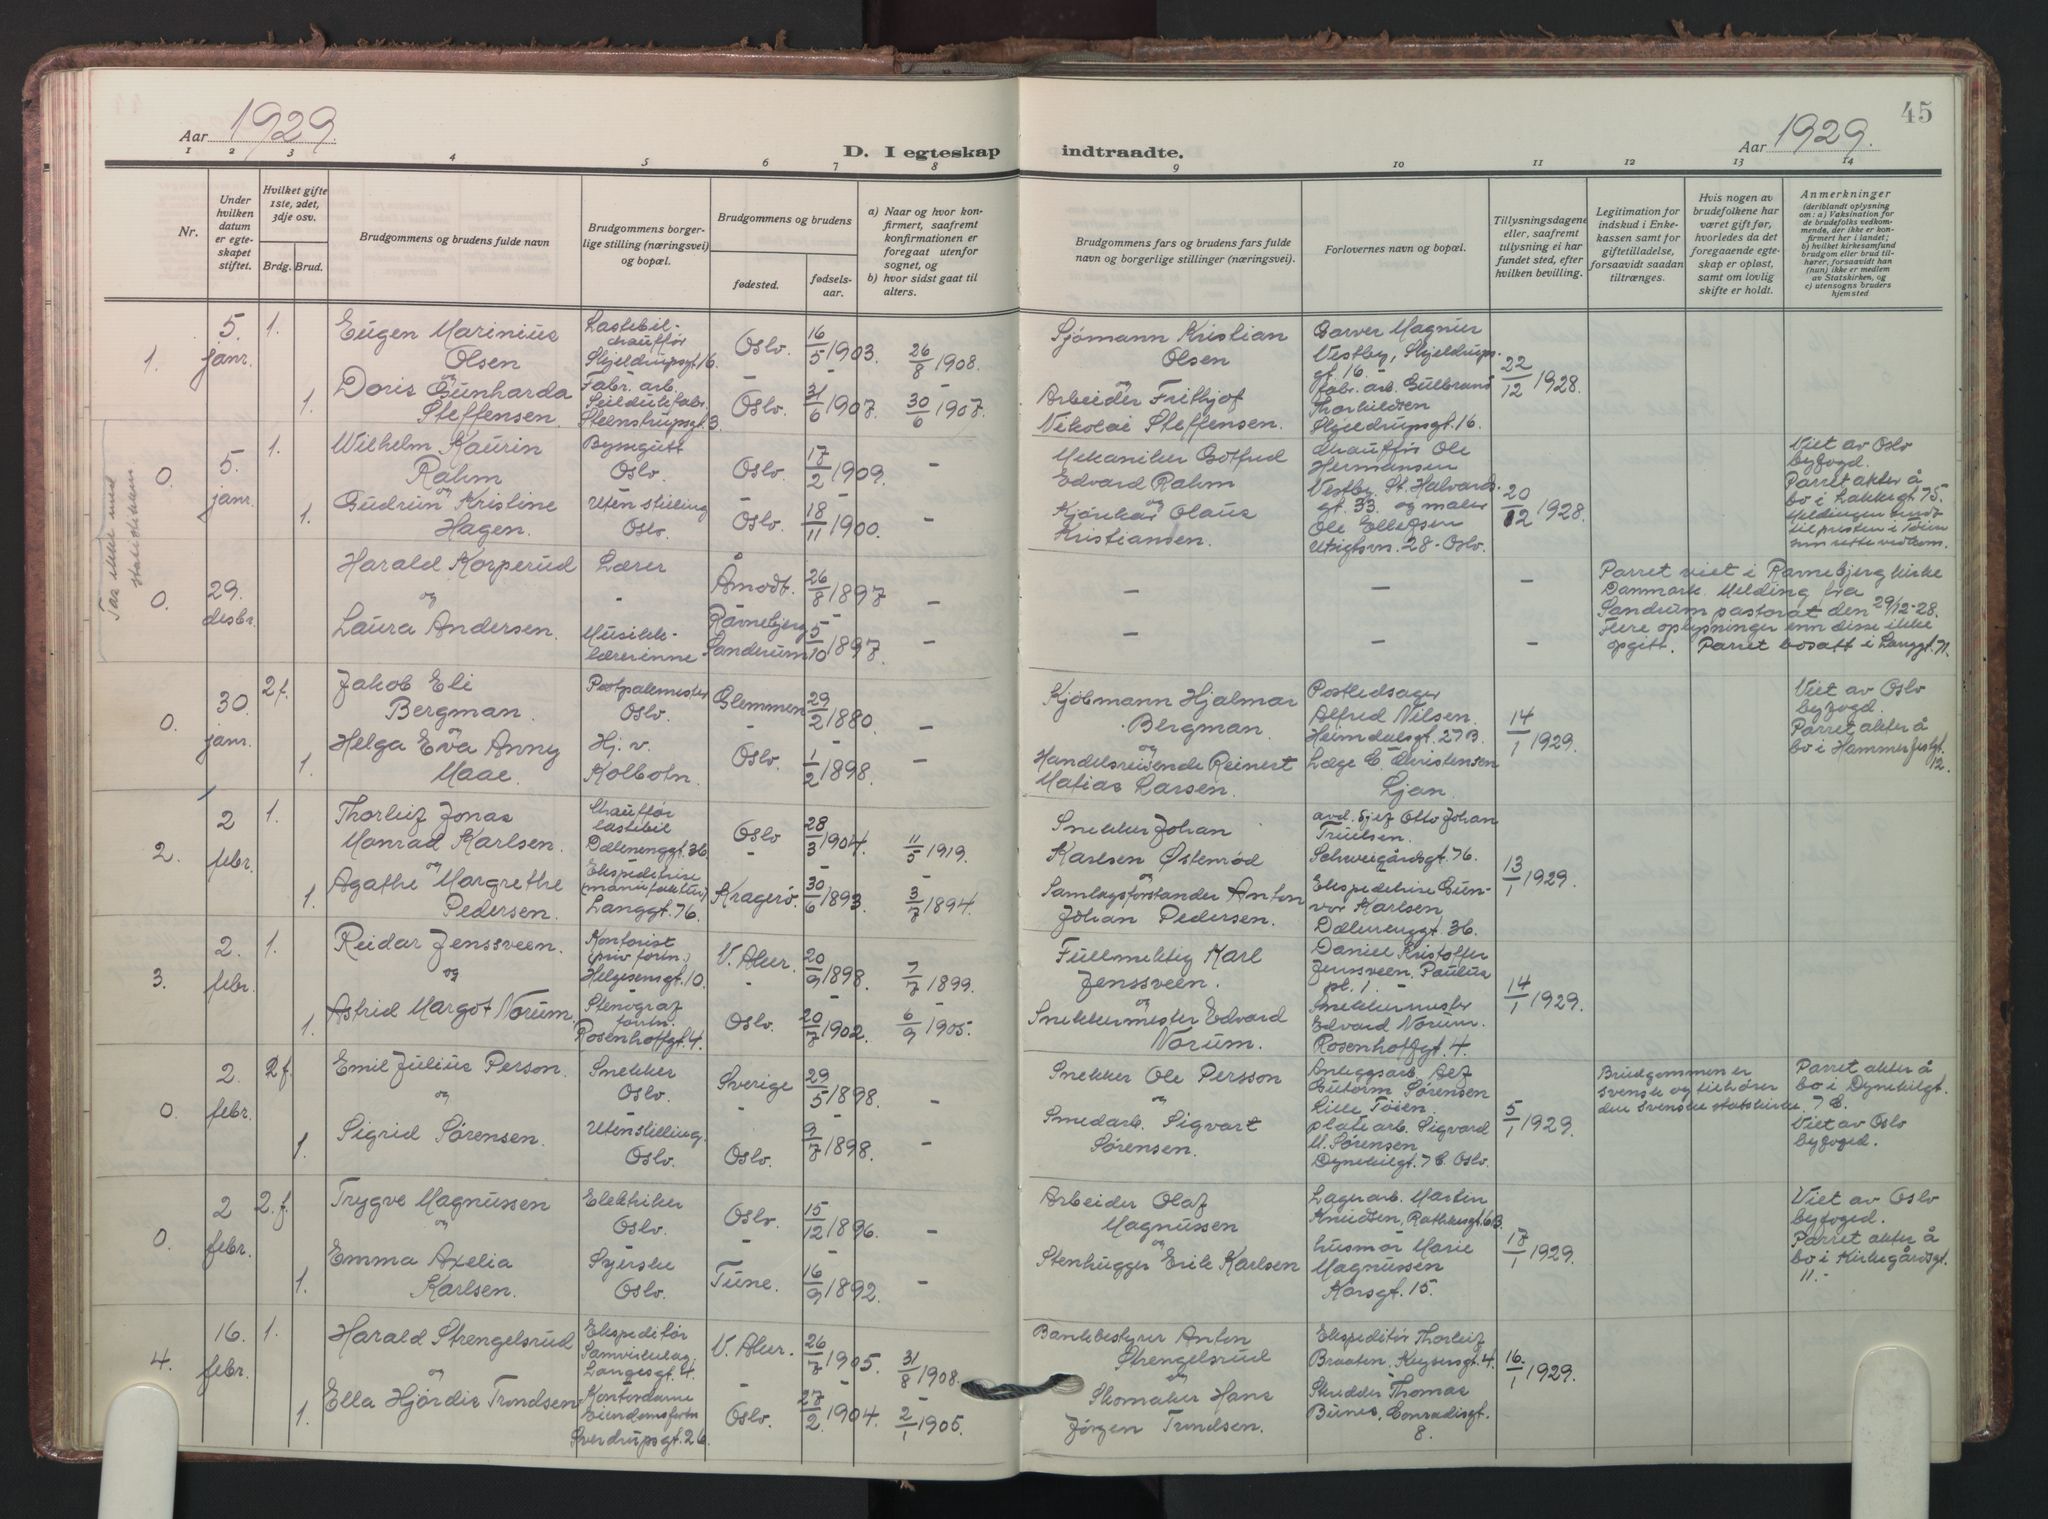 45
Aar 1929.
Aar 1929.
D. I egteskap indtraadte.
1 2 3 4 5 6 7 8 9 10 11 12 13 14
Nr.
Under
hvilken
datum
er egte-
skapet
stiftet.
Hvilket gifte
1ste, 2det,
3dje osv.
Brdg. Brud.
Brudgommens og brudens fulde navn
Brudgommens borger-
lige stilling (næringsvei)
og bopæl.
Brudgommens og brudens
fødested.
fødsels-
aar.
a) Naar og hvor kon-
firmert, saafremt
konfirmationen er
foregaat utenfor
sognet, og
b) hvor sidst gaat til
alters.
Brudgommens fars og brudens fars fulde
navn og borgerlige stillinger (næringsvei).
Forlovernes navn og bopæl.
Tillysningsdagene
eller, saafremt
tillysning ei har
fundet sted, efter
hvilken bevilling.
Legitimation for
indskud i Enke-
kassen samt for
giftetilladelse,
forsaavidt saadan
tiltrænges.
Hvis nogen av
brudefolkene har
været gift før,
hvorledes da det
foregaaende egte-
skap er opløst,
samt om lovlig
skifte er holdt.
Anmerkninger
(deriblandt oplysning
om: a) Vaksination for
de brudefolks vedkom-
mende, der ikke er kon-
firmert her i landet;
b) hvilket kirkesamfund
brudgom eller brud til-
hører, forsaavidt han
(hun) ikke er medlem
av Statskirken, og
c) utensogns bruders
hjemsted
Tas ikke med
statistikken
1.
5.
janr.
1.
Eugen Marinius
Olsen
og
Lastebil-
chauffør
Skjeldrupsgt. 16.
Oslo.
16/5 1903.
26/8 1908.
Sjømann Kristian
Olsen
og
Garver Magnus
Vestby, Skjeldrups-
gt. 16. -
22/12 1928.
1.
Doris Gunharda
Steffensen
Fabr. arb.
Seildukfabr.
Steenstrupsgt. 3
Oslo.
31/6 1907.
30/6 1907.
Arbeider Frithjof
Nikolai Steffensen.
fabr. arb. Gulbrand
Thorkildsen
Skjeldrupsgt. 16.
0.
5.
janr.
1.
Wilhelm Kaurin
Rahm
og
Oslo
Oslo.
17/2 1909.
-
Mekaniker Gotfred
Edvard Rahm
og
Chauffør Ole
Hermansen
Vestby. St. Halvards-
gt. 33. og maler
20/12 1928.
Viet av Oslo
byfogd.
Parret akter å
bo i Lakkegt 75.
Meldingen sendt
til presten i Tøien
1.
Gudrun Kristine
Hagen.
Uten stilling
Oslo.
Oslo.
18/11 1900.
-
Kjørekar Olaus
Kristiansen.
Ole Ellefsen
Utsigtsvn. 28 - Oslo.
0.
29.
desbr.
Harald Korperud
og
Lærer
-
Åmodt.
26/8 1897
-
-
-
-
Parret viet i Ravnebjerg kirke
Danmark. Melding fra
Sanderum pastorat den 29/12-28.
Flere oplysninger enn disse ikke
opgitt. Parret bosatt i Langgt. 71.
Laura Andersen.
Musikk-
lærerinne
Ravnebjerg
Sanderum
5/10 1897.
-
-
-
-
0.
30.
janr.
2 f.
Jakob Eli
Bergman.
og
Oslo.
Glemmen
29/2 1880.
-
Kjøbmann Hjalmar
Bergman.
og
Postledsager
Alfred Nilsen.
Heimdalsgt. 27 B.
14/1 1929.
Viet av Oslo
byfogd.
Parret akter å
bo i Hammerfestgt.
12.
1.
Helga Eva Anny
Maae.
Hj. v.
Kolbotn.
Oslo.
1/2 1898.
-
Handelsreisende Reinert
Matias Larsen.
Læge C. Christensen
Ljan.
2.
2
febr.
1.
Thorleif Jonas
Monrad Karlsen.
og
Chauffør
lastebil
Dælenenggt. 36.
Oslo
28/3 1904.
11/5 1919.
Snekker Johan
Karlsen Østenrød
og
avd. sjef Otto Johan
Truelsen.
Schweigårdsgt. 76.
13/1 1929.
1.
Agathe Margrethe
Pedersen.
Ekspeditrise
(manufaktur)
Langgt. 76.
Kragerø.
30/6 1893.
3/7 1894.
Samlagsforstander Anton
Johan Pedersen.
Ekspeditrise Gun-
vor Karlsen
Dælenenggt. 36.
3.
2.
febr.
1.
Reidar Jenssveen.
og
Kontorist
(priv. fortn.)
Helgesensgt. 10.
V. Aker.
20/9 1898.
7/7 1899.
Fullmektig Karl
Jenssveen.
og
Daniel Kristoffer
Jenssveen. Paulus
pl. 1. -
14/1 1929.
1.
Astrid Margot Norum.
Stenograf
fortn.
Rosenhoffgt. 4.
Oslo.
20/7 1902.
6/9 1905.
Snekkermester Edvard
Norum.
Snekkermester
Edvard Norum.
Rosenhoffgt. 4.
0.
2.
febr.
2 f.
Emil Julius Person.
og
Snekker
Oslo.
Sverige
29/5 1898.
-
Snekker Ole Persson
og
Anleggsarb. Alf
Gutorm Sørensen
Lille Tøien.
5/1 1929.
Brudgommen er
svensk og tilhører
den svenske statskirke.
Parret akter å
bo i Dynekilgt.
7 C.
Viet av Oslo
byfogd.
1.
Sigrid Sørensen.
Uten stilling.
Oslo.
Oslo.
9/7 1898.
-
Smedarb. Sigvart
Sørensen.
platearb. Sigvard
M. Sørensen
Dynekilgt. 7 C. Oslo.
0.
2
febr.
2. f.
Trygve Magnussen
og
Elektriker
Oslo.
Oslo.
15/12 1896.
-
Arbeider Olaf
Magnussen
og
Lagerarb. Martin
Knudsen, Rathkesgt. 6 B.
17/1 1929.
Viet av Oslo
byfoged.
Parret akter å
bo i Kirkegårdsgt.
11.-
1.
Emma Axelia
Karlsen.
Syerske
Oslo.
Tune.
16/9 1892.
-
Stenhugger Erik Karlsen
husmor Marie
Magnussen
Korsgt. 15.
4.
16.
febr.
1.
Harald Strengelsrud
og
Ekspeditør
Samvirkelag
Langesgt. 4.
V. Aker.
26/7 1905.
31/8 1908.
Bankbestyrer Anton
Strengelsrud
og
Ekspeditør Thorleif
Braaten, Keysersgt. 4.
16/1 1929.
1.
Ella Hjørdis Trondsen
Kontordame
Eiendomsfortn.
Sverdrupsgt. 26.
Oslo.
27/2 1904.
2/1 1905.
Skomaker Hans
Jørgen Trondsen.
Skredder Thomas
Bunes, Conradisgt.
8.